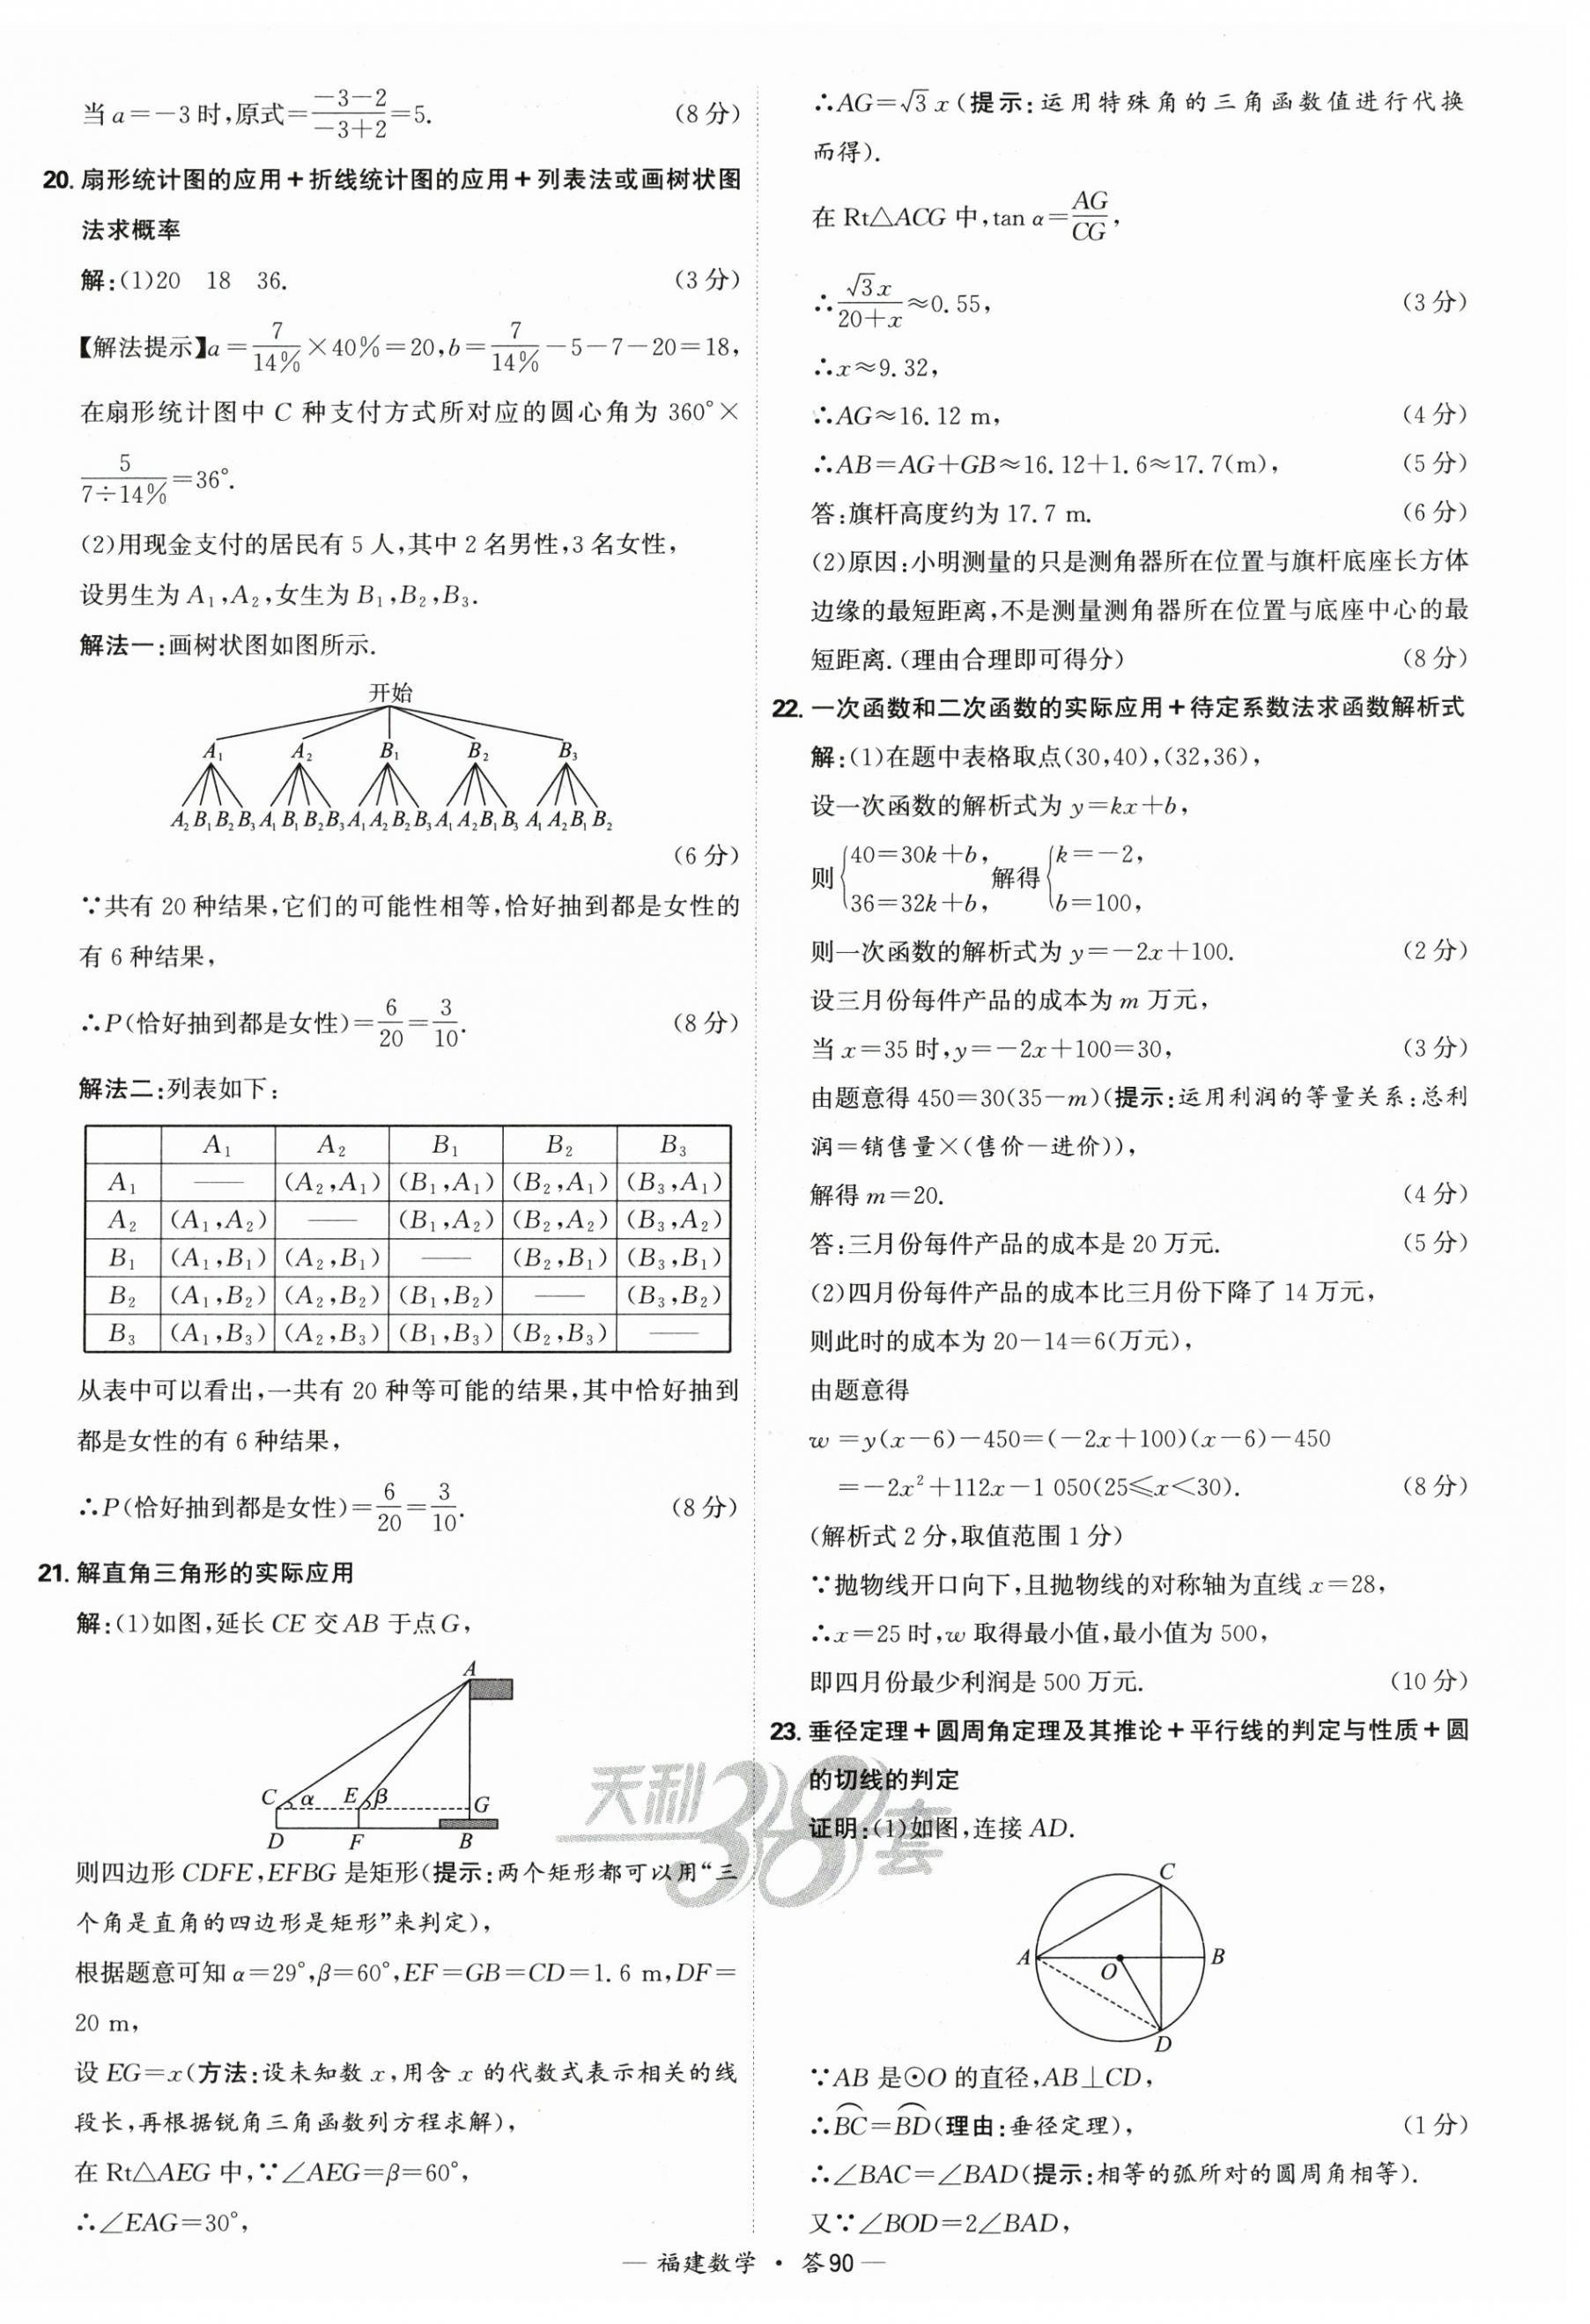 当 a=-3 时,原式=\frac{-3-2}{-3+2}=5. (8分)
20. 扇形统计图的应用+折线统计图的应用+列表法或画树状图
法求概率
解:(1)20 18 36. (3分)
【解法提示】a=\frac{7}{14%}×40%=20,b=\frac{7}{14%}-5-7-20=18,
在扇形统计图中 C 种支付方式所对应的圆心角为 360°×
\frac{5}{7÷14%}=36°.
(2)用现金支付的居民有 5 人,其中 2 名男性,3 名女性,
设男生为 A₁,A₂,女生为 B₁,B₂,B₃.
解法一:画树状图如图所示.
开始
A₁ A₂ B₁ B₂ B₃
A₂ B₁ B₂ B₃ A₁ B₁ B₂ B₃ A₁ A₂ B₂ B₃ A₁ A₂ B₁ B₃ A₁ A₂ B₁ B₂
(6分)
∵共有 20 种结果,它们的可能性相等,恰好抽到都是女性的
有 6 种结果,
∴P(恰好抽到都是女性)=\frac{6}{20}=\frac{3}{10}. (8分)
解法二:列表如下:
A₁ A₂ B₁ B₂ B₃
A₁ —— (A₂,A₁) (B₁,A₁) (B₂,A₁) (B₃,A₁)
A₂ (A₁,A₂) —— (B₁,A₂) (B₂,A₂) (B₃,A₂)
B₁ (A₁,B₁) (A₂,B₁) —— (B₂,B₁) (B₃,B₁)
B₂ (A₁,B₂) (A₂,B₂) (B₁,B₂) —— (B₃,B₂)
B₃ (A₁,B₃) (A₂,B₃) (B₁,B₃) (B₂,B₃) ——
从表中可以看出,一共有 20 种等可能的结果,其中恰好抽到
都是女性的有 6 种结果,
∴P(恰好抽到都是女性)=\frac{6}{20}=\frac{3}{10}. (8分)
21. 解直角三角形的实际应用
解:(1)如图,延长 CE 交 AB 于点 G,
A
C α E β G
D F B
则四边形 CDFE,EFBG 是矩形(提示:两个矩形都可以用“三
个角是直角的四边形是矩形”来判定),
根据题意可知 α=29°,β=60°,EF=GB=CD=1.6 m,DF=
20 m,
设 EG=x(方法:设未知数 x,用含 x 的代数式表示相关的线
段长,再根据锐角三角函数列方程求解),
在 Rt△AEG 中,∵∠AEG=β=60°,
∴∠EAG=30°,
∴AG=√3 x(提示:运用特殊角的三角函数值进行代换
而得).
在 Rt△ACG 中,tan α=\frac{AG}{CG},
∴\frac{√3x}{20+x}≈0.55, (3分)
∴x≈9.32,
∴AG≈16.12 m, (4分)
∴AB=AG+GB≈16.12+1.6≈17.7(m), (5分)
答:旗杆高度约为 17.7 m. (6分)
(2)原因:小明测量的只是测角器所在位置与旗杆底座长方体
边缘的最短距离,不是测量测角器所在位置与底座中心的最
短距离.(理由合理即可得分) (8分)
22. 一次函数和二次函数的实际应用+待定系数法求函数解析式
解:(1)在题中表格取点(30,40),(32,36),
设一次函数的解析式为 y=kx+b,
则{40=30k+b, 36=32k+b, 解得{k=-2, b=100,
则一次函数的解析式为 y=-2x+100. (2分)
设三月份每件产品的成本为 m 万元,
当 x=35 时,y=-2x+100=30, (3分)
由题意得 450=30(35-m)(提示:运用利润的等量关系:总利
润=销售量×(售价-进价)),
解得 m=20. (4分)
答:三月份每件产品的成本是 20 万元. (5分)
(2)四月份每件产品的成本比三月份下降了 14 万元,
则此时的成本为 20-14=6(万元),
由题意得
w=y(x-6)-450=(-2x+100)(x-6)-450
=-2x²+112x-1 050(25≤x<30). (8分)
(解析式 2 分,取值范围 1 分)
∵抛物线开口向下,且抛物线的对称轴为直线 x=28,
∴x=25 时,w 取得最小值,最小值为 500,
即四月份最少利润是 500 万元. (10分)
23. 垂径定理+圆周角定理及其推论+平行线的判定与性质+圆
的切线的判定
证明:(1)如图,连接 AD.
C
A O B
D
∵AB 是⊙O 的直径,AB⊥CD,
∴\overset{⌒}{BC}=\overset{⌒}{BD}(理由:垂径定理), (1分)
∴∠BAC=∠BAD(提示:相等的弧所对的圆周角相等).
又∵∠BOD=2∠BAD,
天利38套
— 福建数学 · 答90 —